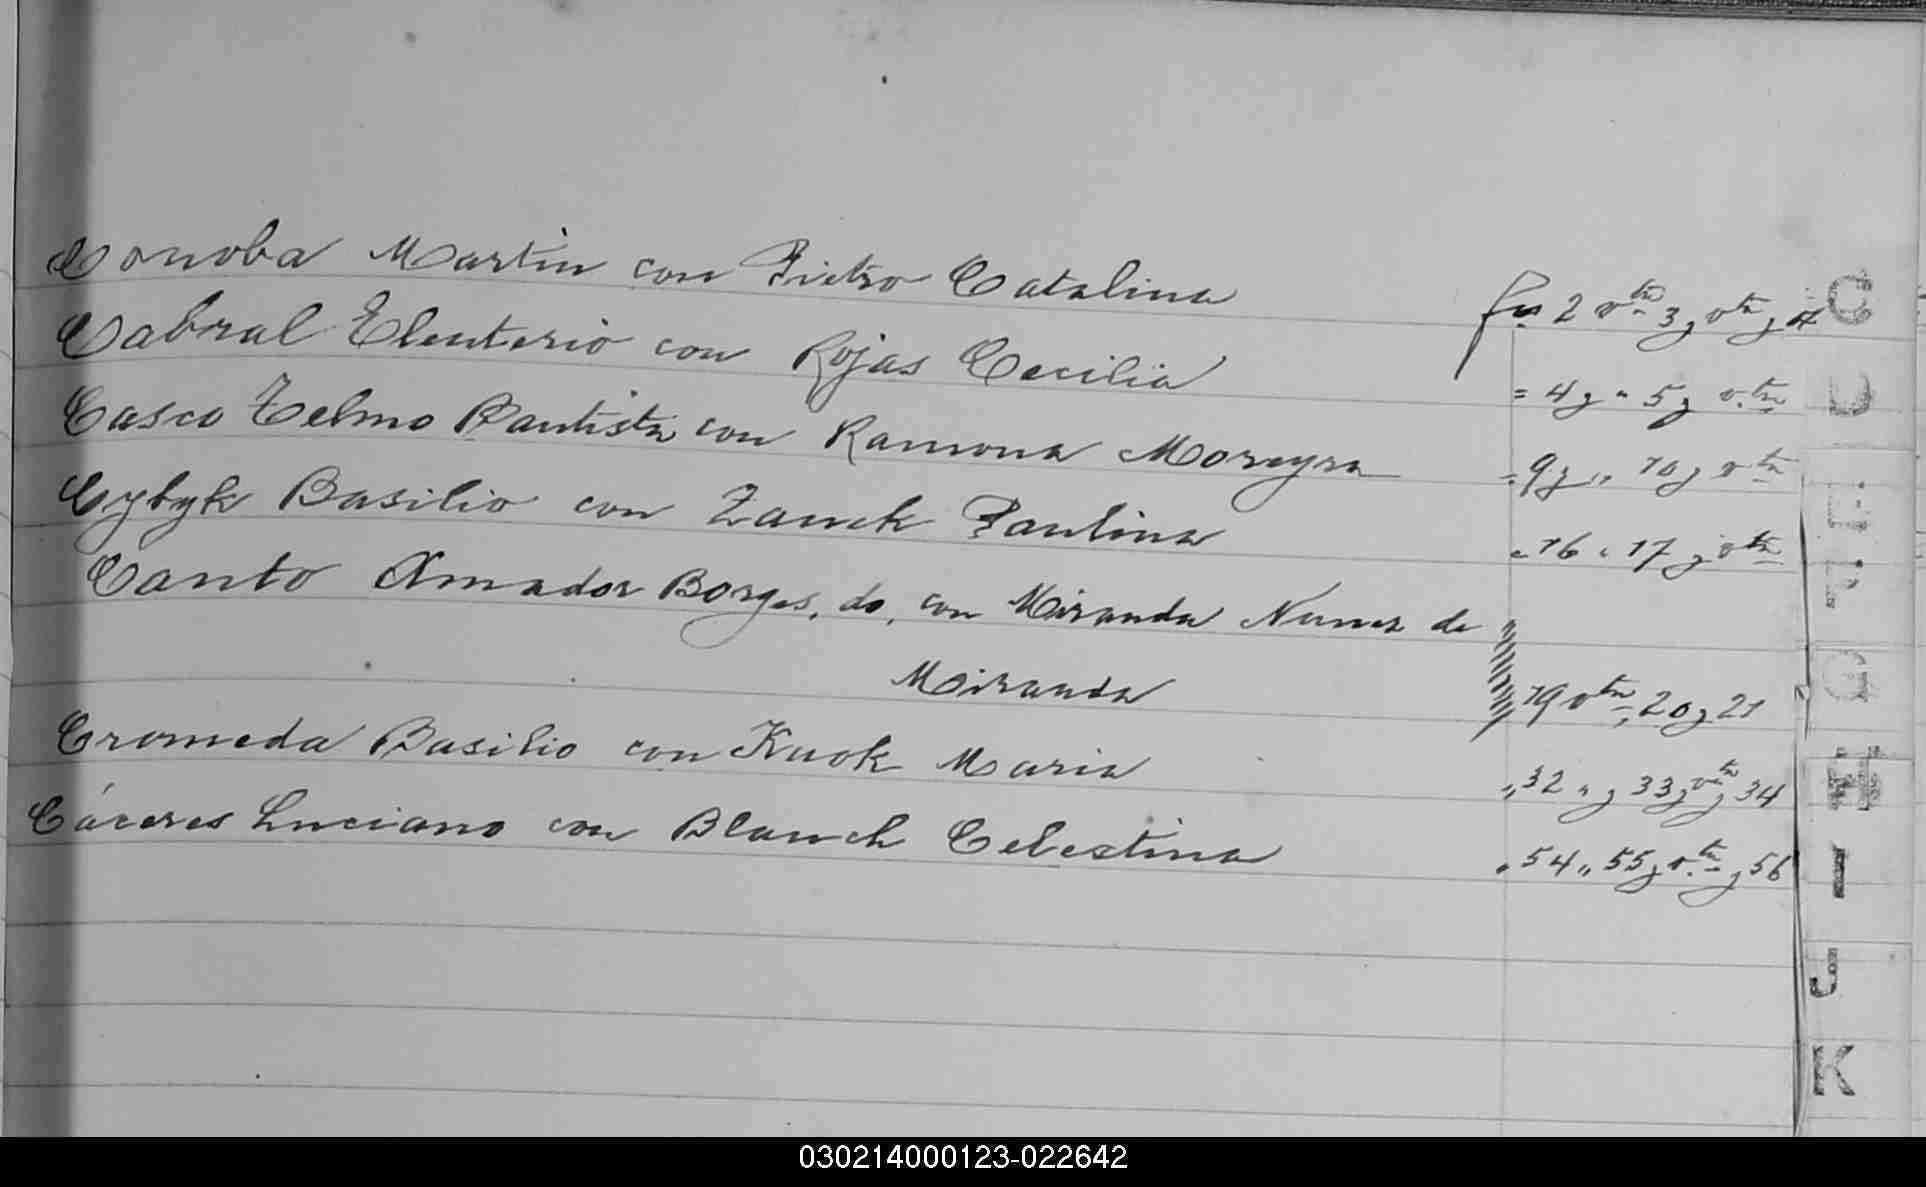 Conoba Martin con Pietro Catalina fs. 2 vta 3 y vta y 4
Cabral Eleuterio con Rojas Cecilia = 4 y " 5 y vta
Casco Telmo Bautista con Ramona Moreyra " 9 y " 10 y vta
Cybyk Basilio con Zanek Paulina " 16 " 17 y vta
Canto Amador Borges, do, con Miranda Nunez de
Miranda 19 vta, 20 y 21
Cromeda Basilio con Kuok Maria " 32 " y 33 y vta y 34
Cáceres Luciano con Blanch Celestina " 54 " 55 y vta y 56
C
D
G
H
I
J
K
030214000123-022642